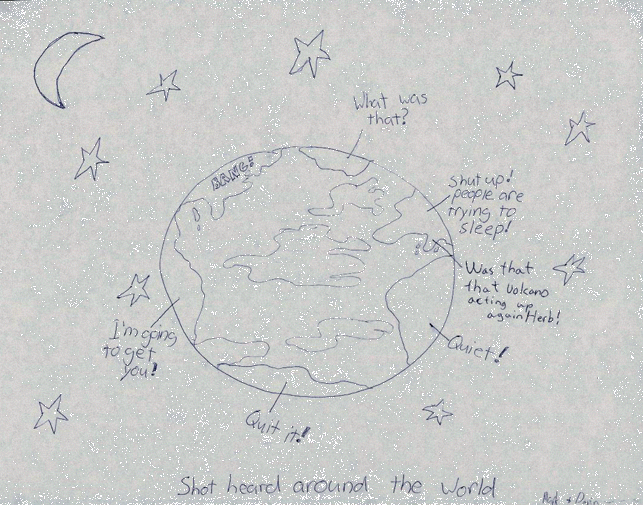 What was
that?
BANG!
Shut up!
people are
trying to
sleep!
Was that
that Volcano
acting up
again Herb!
I'm going
to get
you!
Quiet!
Quit it!
Shot heard around the World